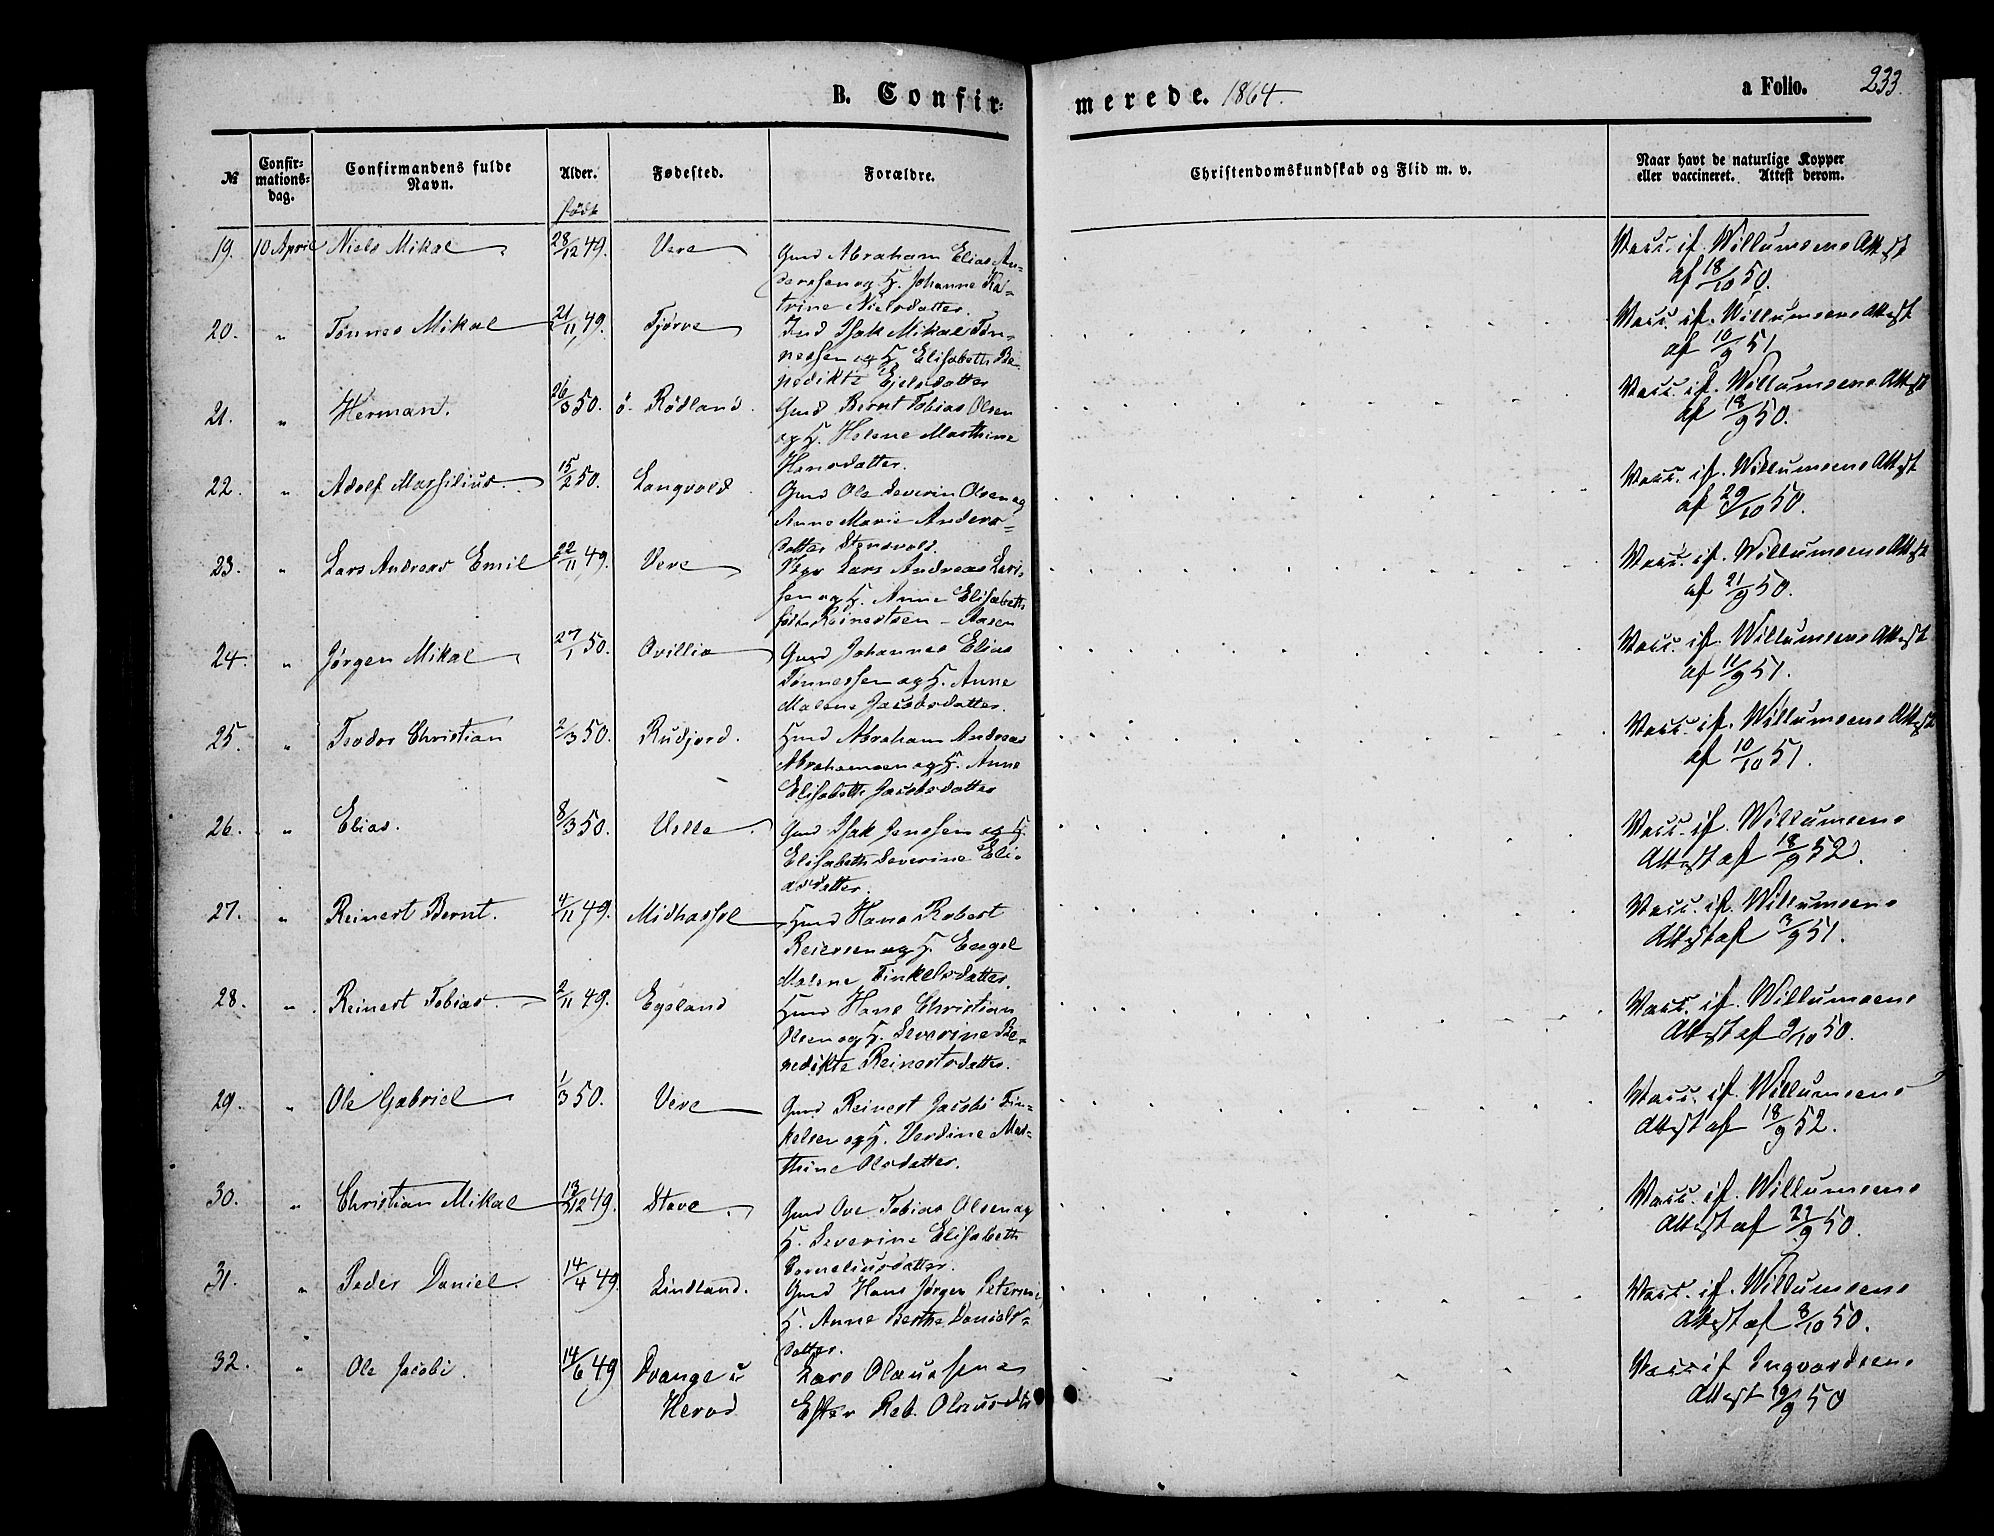 B. Confir-
merede. 1864.
a Folio. 233.
№
Confir-
mations-
dag.
Confirmandens fulde
Navn.
Alder.
Fødested.
Forældre.
Christendomskundskab og Flid m. v.
Naar havt de naturlige Kopper
eller vaccineret. Attest derom.
født
19. 10 April Niels Mikal 28/12 49. Vere
Gmd Abraham Elias An-
dersen og H. Johanne Ka-
trine Nielsdatter.
Vacc. if. Willumsens Attest
af 18/10 50.
20. " Tønnes Mikal 21/11 49. Tjørve
Isak Mikal Tøn-
nessen og H. Elisabeth Be-
nedikte Ejelsdatter
Vacc. if. Willumsens Attest
af 10/9 51.
21. " Herman. 26/3 50. ö. Rödland.
Gmd Bernt Tobias Olsen
og H. Helene Marthine
Hansdatter.
Vacc. if. Willumsens Attest
af 18/9 50.
22. " Adolf Massilius. 15/2 50. Langvold
Gmd Ole Severin Olsen og
Anne Marie Anders-
datter Stensvold.
Vacc. if. Willumsens Attest
af 29/10 50.
23. " Lars Andreas Emil 22/11 49. Vere
Lars Andreas Lari-
sen og H. Anne Elisabeth
født Reinertsen - Aasen
Vacc. if. Willumsens Attest
af 21/9 50.
24. " Jørgen Mikal 27/1 50. Ovillia
Gmd Johannes Elias
Tønnessen og H. Anne
Malene Jacobsdatter.
Vacc. if. Willumsens Attest
af 11/9 51.
25. " Teodor Christian 2/3 50. Rudjord.
Hmd Abraham Andreas
Abrahamsen og H. Anne
Elisabeth Jacobsdatter
Vacc. if. Willumsens Attest
af 10/10 51.
26. " Elias. 8/3 50. Ulle.
Gmd Isak Jenssen og H.
Elisabeth Severine Eli-
asdatter.
Vacc. if. Willumsens
Attest af 18/9 52.
27. " Reinert Bernt. 4/11 49. Midhassel
Hmd Hans Robert
Reiersen og H. Engel
Malene Tinkelsdatter.
Vacc. if. Willumsens
Attest af 3/9 51.
28. " Reinert Tobias. 2/11 49. Egeland
Hmd Hans Christian
Olsen og H. Severine Be-
nedikte Reinertsdatter.
Vacc. if. Willumsens
Attest af 9/10 50.
29. " Ole Gabriel 1/3 50. Vere
Gmd Reinert Jacobi Tin-
kelsen og H. Verdine Mar-
thine Olsdatter.
Vacc. if. Willumsens
Attest af 18/9 52.
30. " Christian Mikal 13/12 49. Stave
Gmd Ove Tobias Olsen og
H. Severine Elisabeth
Corneliusdatter.
Vacc. if. Willumsens
Attest af 21/9 50.
31. " Peder Daniel. 14/4 49. Lindland.
Gmd Hans Jørgen Petersen
H. Anne Berthe Daniels-
datter.
Vacc. if. Willumsens
Attest af 8/10 50.
32. " Ole Jacobi. 14/6 49 Dvange i
Herad
Lars Olaussen
Ester Reb. Olausdtr
Vacc if Ingvardsens
Attest 19/9 50